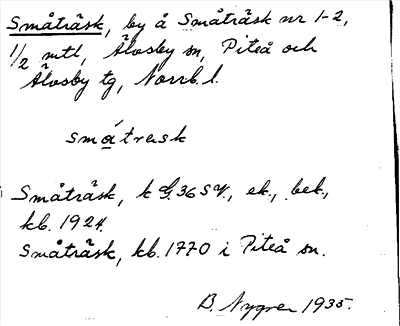 Småträsk, by å Småträsk nr 1-2,
1/2 mtl, Älvsby sn, Piteå och
Älvsby tg, Norrb. l.
småtrask
Småträsk, k G. 36 SV., ek., bek.,
kb. 1924.
Småträsk, kb. 1770 i Piteå sn.
B. Nygren 1935.